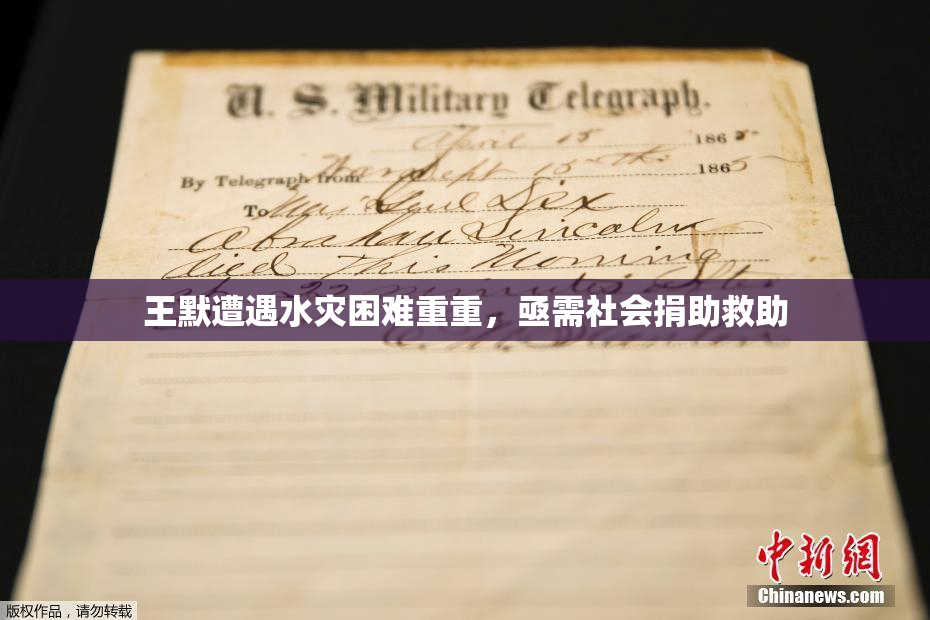 U. S. Military Telegraph.
April 15 1865
By Telegraph from War Dept 15th 1865
To Maj Genl Dix
Abraham Lincoln
died This Morning
at 22 minutes after
王默遭遇水灾困难重重，亟需社会捐助救助
E. M. Stanton
中新網
Chinanews.com
版权作品，请勿转载